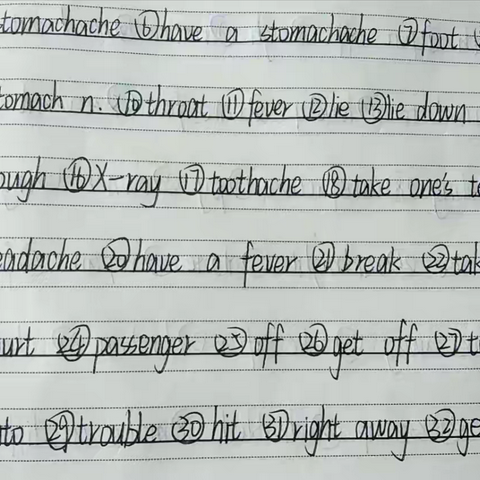 tomachache ⑥have a stomachache ⑦foot
tomach n. ⑩throat ⑪fever ⑫lie ⑬lie down
ough ⑯X-ray ⑰toothache ⑱take one's t
eadache ⑳have a fever ㉑break ㉒tak
urt ㉔passenger ㉕off ㉖get off ㉗t
to ㉙trouble ㉚hit ㉛right away ㉜ge